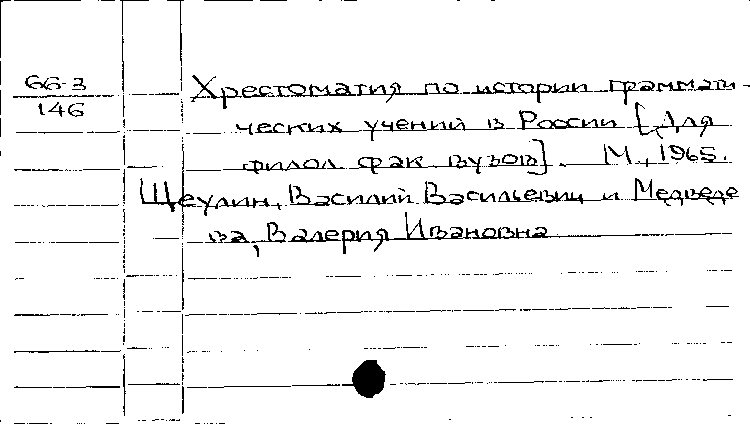 66-3
146
Хрестоматия по истории граммати-
ческих учений в России [Для
филол. фак. вузов]. М., 1965.
Щеулин, Василий Васильевич и Медведе
ва, Валерия Ивановна